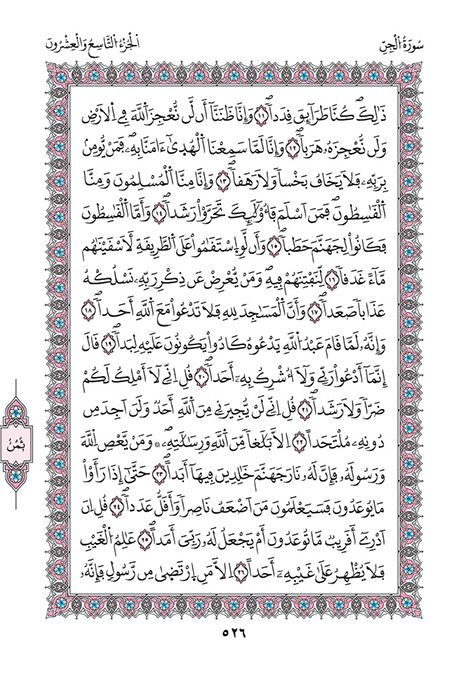 سُورَةُ الْجِنِّ
اَلْجُزْءُ التَّاسِعُ وَالْعِشْرُونَ
ذَٰلِكَۖ كُنَّا طَرَآئِقَ قِدَداًۖ ١١ وَإِنَّا ظَنَنَّآ أَن لَّن نُّعْجِزَ اَللَّهَ فِے اِلَارْضِ
وَلَن نُّعْجِزَهُۥ هَرَباًۖ ١٢ وَإِنَّا لَمَّا سَمِعْنَا اَلْهُدَىٰٓ ءَامَنَّا بِهِۦۖ فَمَنْ يُّومِنۢ
بِرَبِّهِۦ فَلَا يَخَافُ بَخْساً وَلَا رَهَقاًۖ ١٣ وَإِنَّا مِنَّا اَلْمُسْلِمُونَ وَمِنَّا
اَلْقَٰسِطُونَۖ فَمَنَ اَسْلَمَ فَأُوْلَٰٓئِكَ تَحَرَّوْاْ رَشَداًۖ ١٤ وَأَمَّا اَلْقَٰسِطُونَ
فَكَانُواْ لِجَهَنَّمَ حَطَباًۖ ١٥ وَأَن لَّوِ اِسْتَقَٰمُواْ عَلَى اَلطَّرِيقَةِ لَأَسْقَيْنَٰهُم
مَّآءً غَدَقاً ١٦ لِّنَفْتِنَهُمْ فِيهِۖ وَمَنْ يُّعْرِضْ عَن ذِكْرِ رَبِّهِۦ نَسْلُكْهُ
عَذَاباً صَعَداًۖ ١٧ وَأَنَّ اَلْمَسَٰجِدَ لِلهِ فَلَا تَدْعُواْ مَعَ اَللَّهِ أَحَداًۖ ١٨
وَإِنَّهُۥ لَمَّا قَامَ عَبْدُ اُللَّهِ يَدْعُوهُ كَادُواْ يَكُونُونَ عَلَيْهِ لِبَداًۖ ١٩ قَالَ
إِنَّمَآ أَدْعُواْ رَبِّے وَلَآ أُشْرِكُ بِهِۦٓ أَحَداًۖ ٢٠ قُلِ اِنِّے لَآ أَمْلِكُ لَكُمْ
ضَرّاً وَلَا رَشَداًۖ ٢١ قُلِ اِنِّے لَنْ يُّجِيرَنِے مِنَ اَللَّهِ أَحَدٌ وَلَنَ اَجِدَ مِن
دُونِهِۦ مُلْتَحَداً ٢٢ اِلَّا بَلَٰغاً مِّنَ اَللَّهِ وَرِسَٰلَٰتِهِۦۖ ۞ وَمَنْ يَّعْصِ اِللَّهَ
وَرَسُولَهُۥ فَإِنَّ لَهُۥ نَارَ جَهَنَّمَ خَٰلِدِينَ فِيهَآ أَبَداًۖ ٢٣ حَتَّىٰٓ إِذَا رَأَوْاْ
مَا يُوعَدُونَ فَسَيَعْلَمُونَ مَنَ اَضْعَفُ نَاصِراً وَأَقَلُّ عَدَداًۖ ٢٤ قُلِ اِنَ
اَدْرِےٓ أَقَرِيبٌ مَّا تُوعَدُونَ أَمْ يَجْعَلُ لَهُۥ رَبِّيَ أَمَداًۖ ٢٥ عَٰلِمُ اُلْغَيْبِ
فَلَا يُظْهِرُ عَلَىٰ غَيْبِهِۦٓ أَحَداً ٢٦ اِلَّا مَنِ اِرْتَضَىٰ مِن رَّسُولٍ فَإِنَّهُۥ
ثُمُنُ
٥٢٦